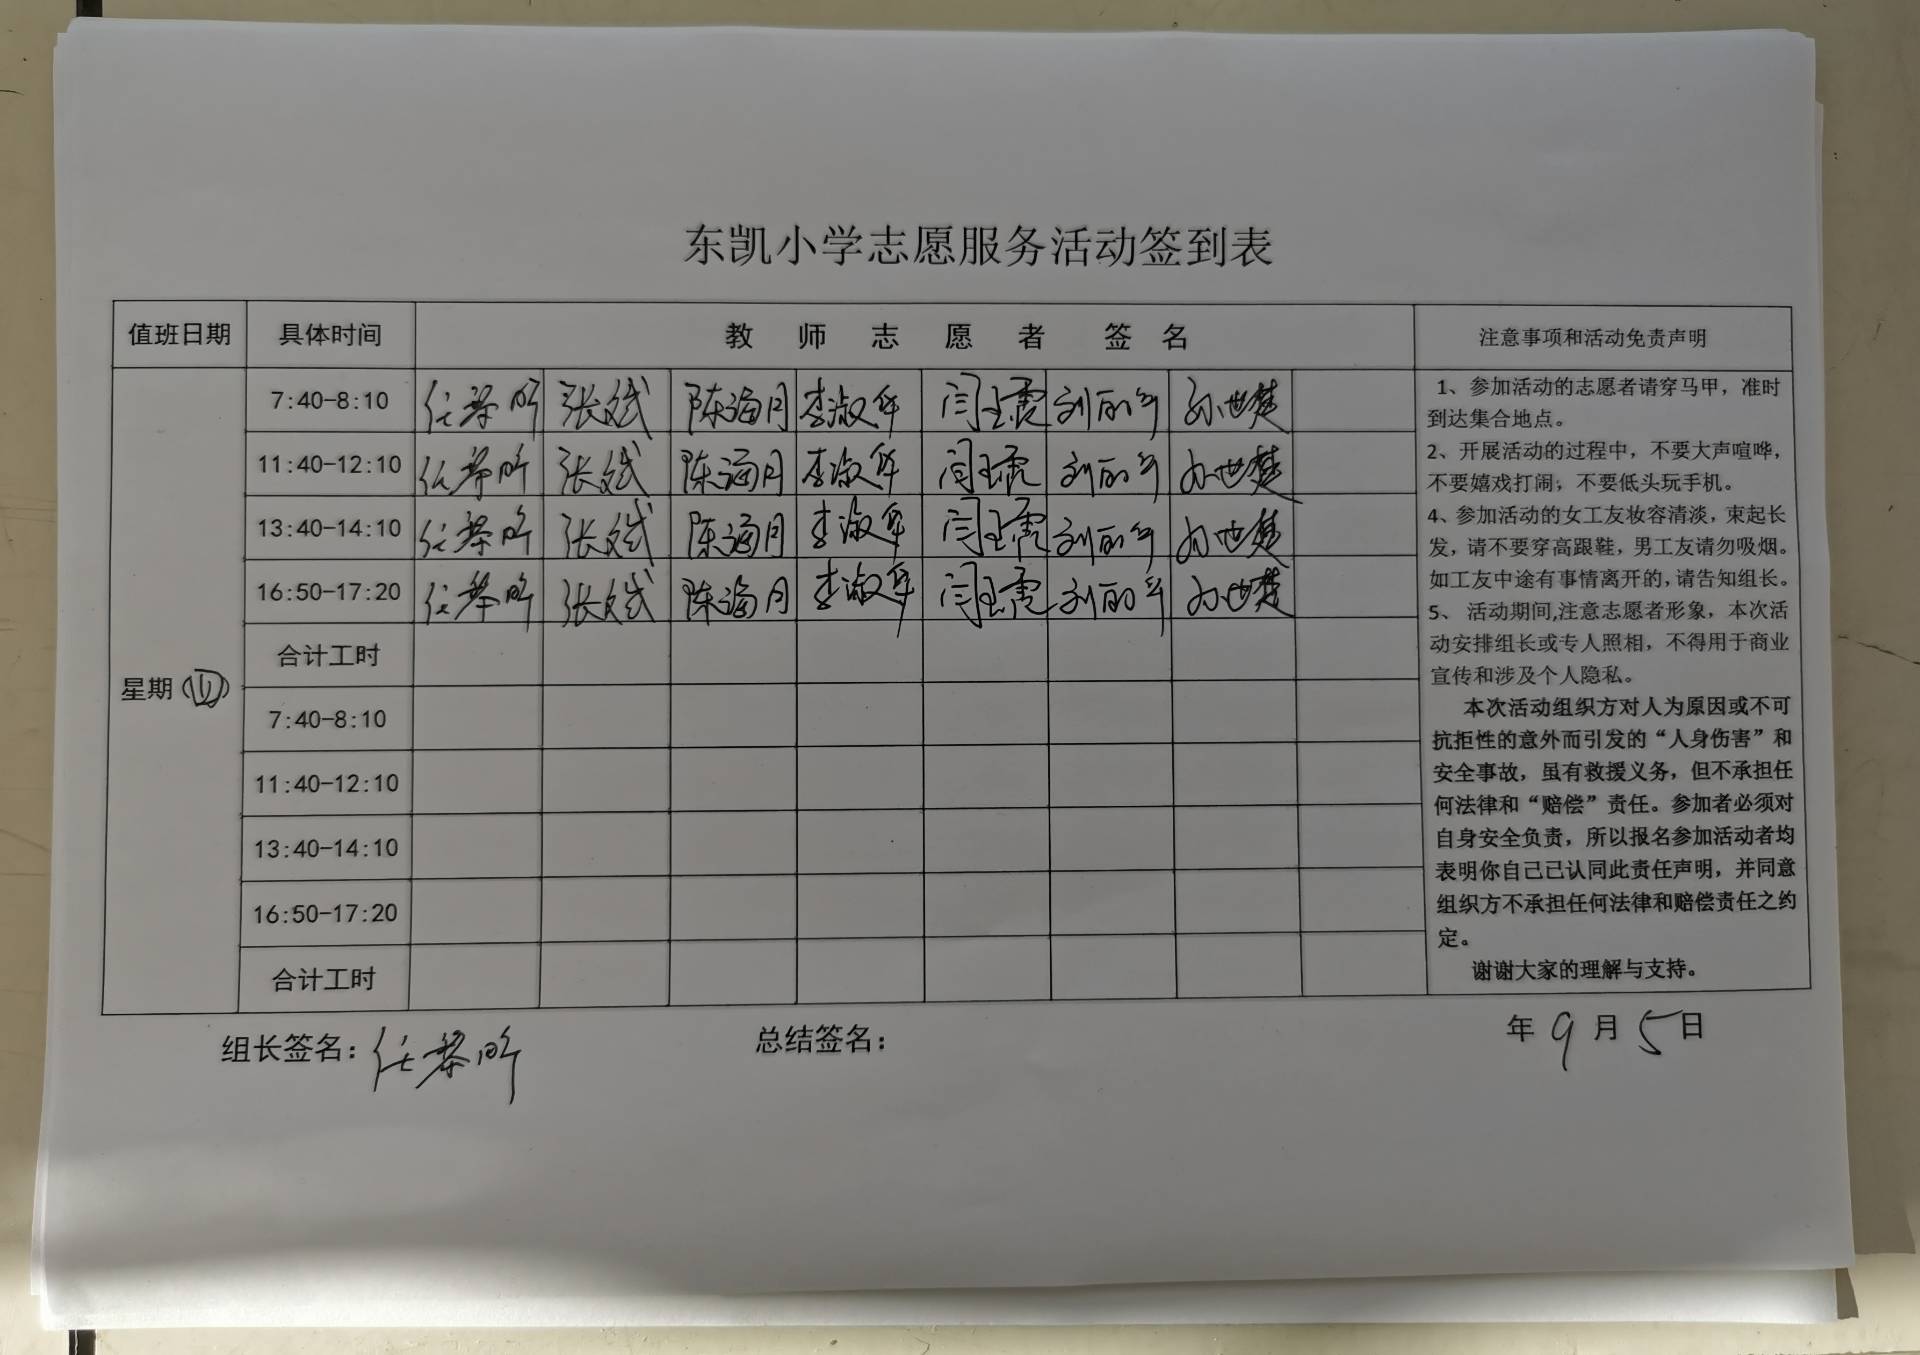 东凯小学志愿服务活动签到表
值班日期 具体时间 教师志愿者签名 注意事项和活动免责声明
星期(四)
7:40-8:10 任黎明 张斌 陈海月 李淑华 闫玉霞 刘丽 孙世楚
11:40-12:10 任黎明 张斌 陈海月 李淑华 闫玉霞 刘丽 孙世楚
13:40-14:10 任黎明 张斌 陈海月 李淑华 闫玉霞 刘丽 孙世楚
16:50-17:20 任黎明 张斌 陈海月 李淑华 闫玉霞 刘丽 孙世楚
合计工时
7:40-8:10
11:40-12:10
13:40-14:10
16:50-17:20
合计工时
1、参加活动的志愿者请穿马甲，准时
到达集合地点。
2、开展活动的过程中，不要大声喧哗，
不要嬉戏打闹；不要低头玩手机。
4、参加活动的女工友妆容清淡，束起长
发，请不要穿高跟鞋，男工友请勿吸烟。
如工友中途有事情离开的，请告知组长。
5、 活动期间,注意志愿者形象，本次活
动安排组长或专人照相，不得用于商业
宣传和涉及个人隐私。
本次活动组织方对人为原因或不可
抗拒性的意外而引发的“人身伤害”和
安全事故，虽有救援义务，但不承担任
何法律和“赔偿”责任。参加者必须对
自身安全负责，所以报名参加活动者均
表明你自己已认同此责任声明，并同意
组织方不承担任何法律和赔偿责任之约
定。
谢谢大家的理解与支持。
组长签名：任黎明 总结签名： 年9月5日